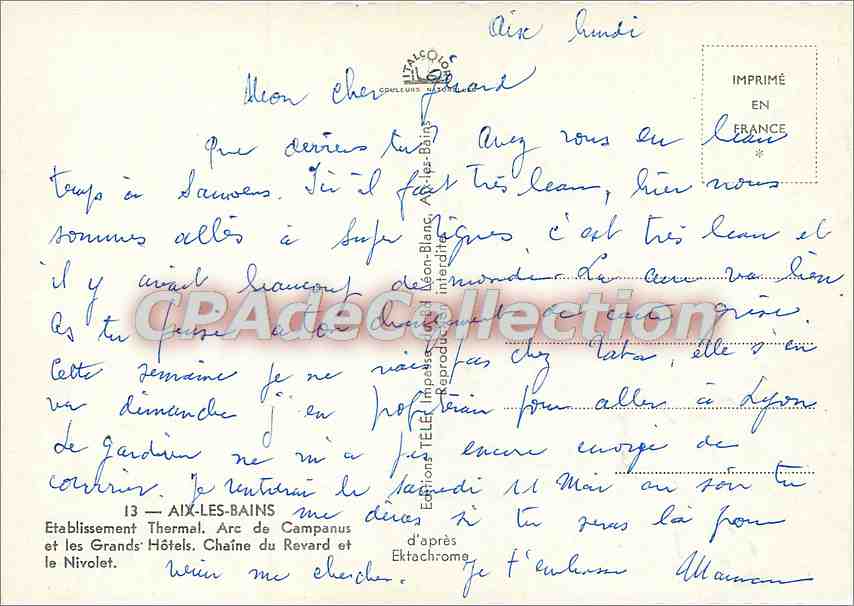 Aix lundi
ITALCOLOR
COULEURS NATURELLES
Mon cher Gérard
IMPRIMÉ
EN
FRANCE
*
Que deviens tu? Avez vous eu beau
temps à . Ici il fait très beau, hier nous
sommes allés à Super Tignes c'est très beau et
il y avait beaucoup de monde. La cure va bien
As tu pensé à ton changement de carte grise.
Cette semaine je ne vais pas chez Tata, elle s'en
va dimanche j'en profiterai pour aller à Lyon
Le gardien ne m'a pas encore envoyé de
courrier. Je rentrerai le samedi 11 Mai au soir tu
me diras si tu seras là pour
venir me chercher. Je t'embrasse Maman
CPAdeCollection
Editions TELE, Impasse Léon-Blanc, Aix-les-Bains
Reproduction interdite
13 — AIX-LES-BAINS
Etablissement Thermal. Arc de Campanus
et les Grands Hôtels. Chaîne du Revard et
le Nivolet.
d'après
Ektachrome